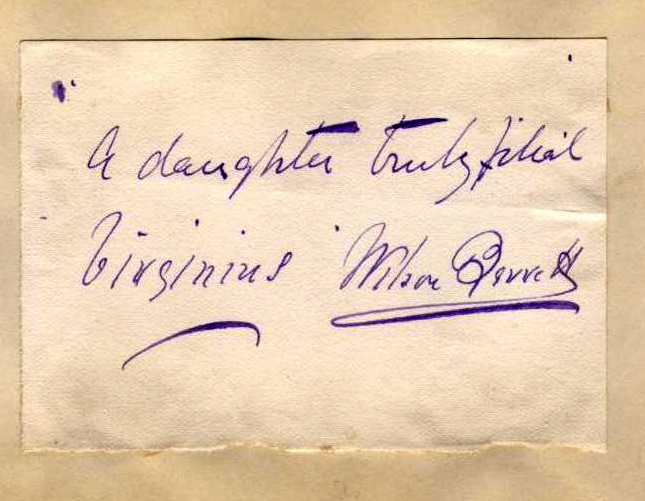 A daughter truly filial
Virginius Wilson Barrett